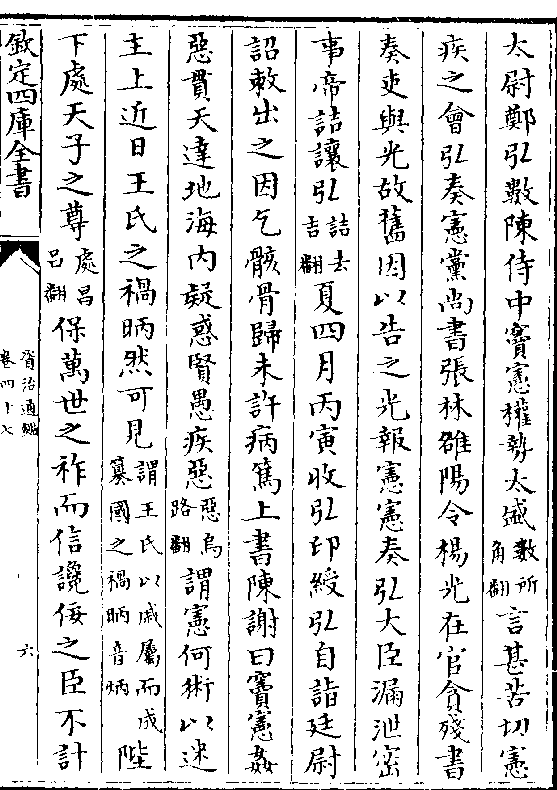 太尉鄭弘數陳侍中竇憲權勢太盛數所角翻言甚苦切憲
疾之會弘奏憲黨尚書張林雒陽令楊光在官貪殘書
奏吏與光故舊因以告之光報憲憲奏弘大臣漏泄宻
事帝詰讓弘詰去吉翻夏四月丙寅收弘印綬弘自詣廷尉
詔敕出之因乞骸骨歸未許病篤上書陳謝曰竇憲姦
惡貫天達地海內疑惑賢愚疾惡惡烏路翻謂憲何術以迷
主上近日王氏之禍昞然可見謂王氏以戚屬而成簒國之禍昞音炳陛
下處天子之尊處昌呂翻保萬世之祚而信讒佞之臣不計
欽定四庫全書
資治通鑑
卷四十七
六